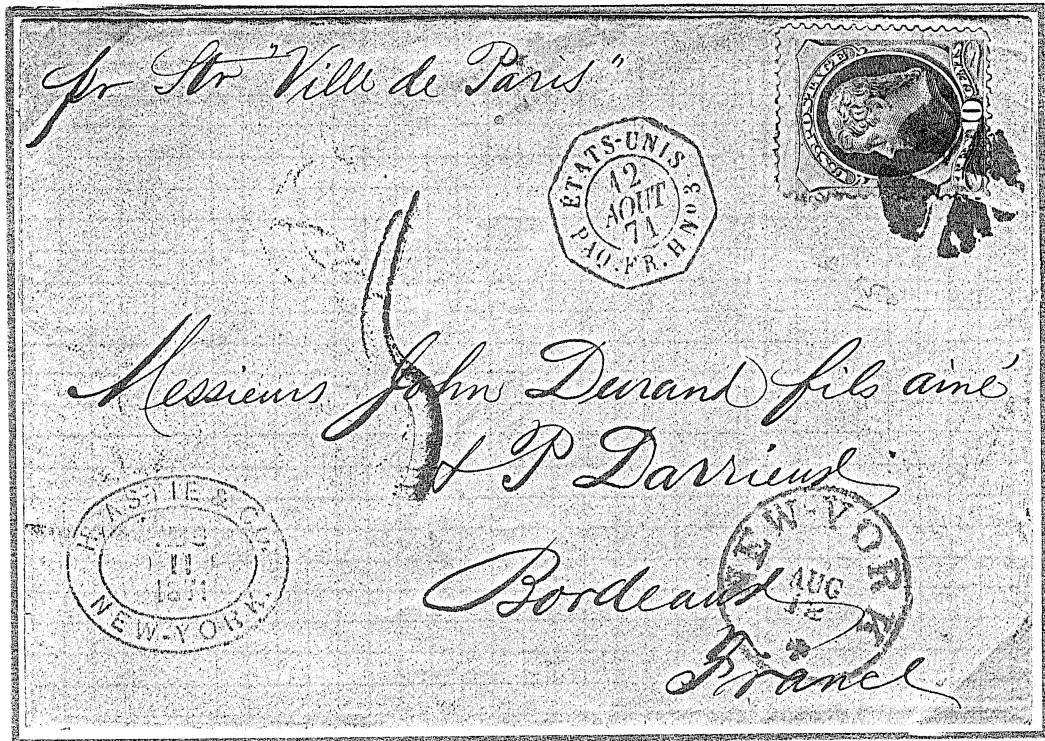 pr Str "Ville de Paris"
U.S. POSTAGE
10
ÉTATS-UNIS
12
AOUT
71
PAQ. FR. H No 3
Messieurs John Durand fils ainé
& P Darrieux
Bordeaux
France
H. ASTIE & CO.
AUG
11
1871
NEW-YORK.
NEW-YORK
AUG
12